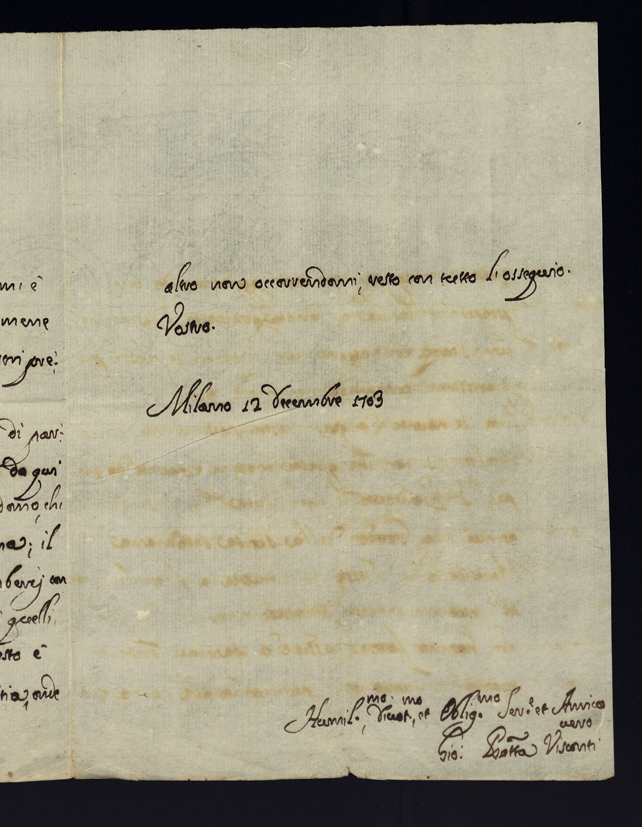 mi è
mene
eri pre:
di par:
da qui
domo, chi
na; il
quelli,
esto è
tia, onde
altro non occorrendomi, resto con tutto l'ossequio.
Vostro.
Milano 12 Decembre 1703
Humil.mo, Divot.mo, et Oblig.mo Ser.e et Amico
vero
Gio: Batta Visconti